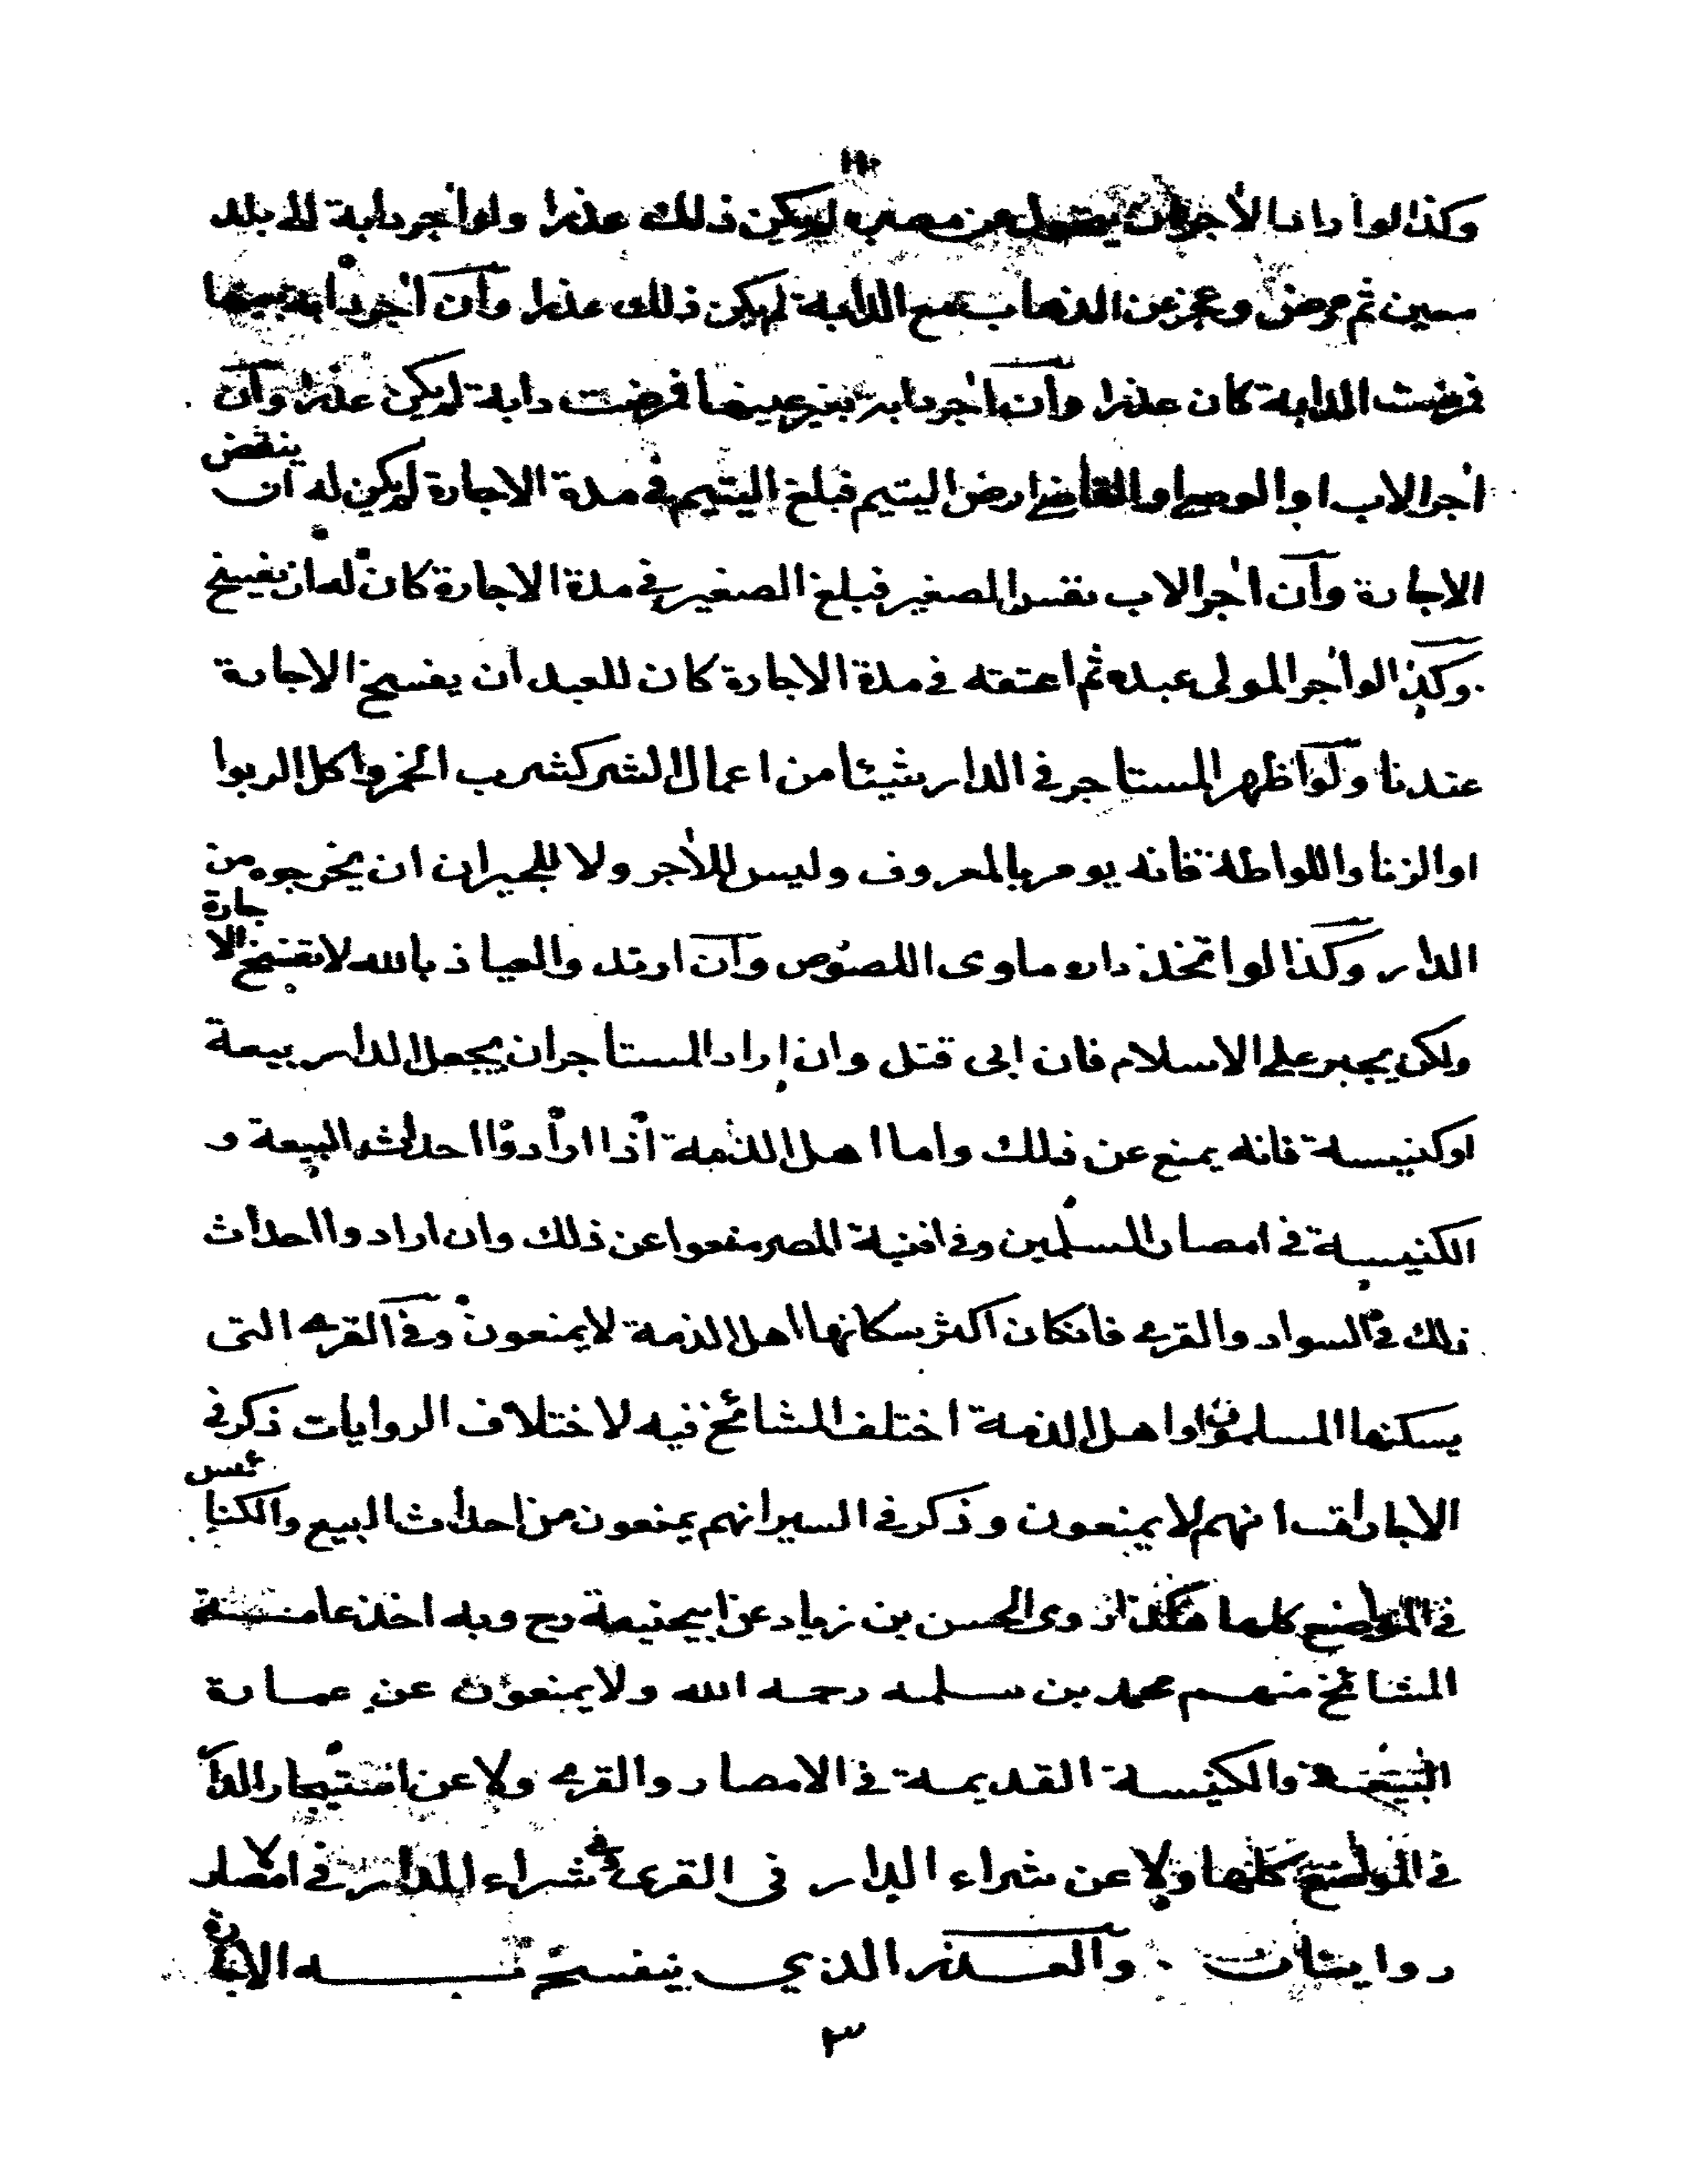 وكذا لو اراد الآجر ان يتحول عن مصره لم يكن ذلك عذرا ولو آجر دابة الى بلد
معين ثم مرض وعجز عن الذهاب مع الدابة لم يكن ذلك عذرا وان آجر دابة بعينها
فمرضت الدابة كان عذرا وان آجر دابة بغير عينها فمرضت دابة لم يكن عذرا وان
آجر الاب او الوصي او القاضي ارض اليتيم فبلغ اليتيم في مدة الاجارة لم يكن له ان ينقض
الاجارة وان آجر الاب نفس الصغير فبلغ الصغير في مدة الاجارة كان له ان يفسخ
وكذا لو آجر المولى عبده ثم اعتقه في مدة الاجارة كان للعبد ان يفسخ الاجارة
عندنا ولو اظهر المستاجر في الدار شيئا من اعمال الشر كشرب الخمر واكل الربوا
او الزنا واللواطة فانه يومر بالمعروف وليس للآجر ولا للجيران ان يخرجوه من
الدار وكذا لو اتخذ داره ماوى اللصوص وان ارتد والعياذ بالله لا تفسخ الاجارة
ولكن يجبر على الاسلام فان ابى قتل وان اراد المستاجر ان يجعل الدار بيعة
او كنيسة فانه يمنع عن ذلك واما اهل الذمة اذا ارادوا احداث البيعة و
الكنيسة في امصار المسلمين وفي افنية المصر منعوا عن ذلك وان ارادوا احداث
ذلك في السواد والقرى فان كان اكثر سكانها اهل الذمة لا يمنعون وفي القرى التي
يسكنها المسلمون او اهل الذمة اختلف المشائخ فيه لاختلاف الروايات ذكر في
الاجارات انهم لا يمنعون وذكر في السير انهم يمنعون من احداث البيع والكنائس
في المواضع كلها هكذا روى الحسن بن زياد عن ابيحنيفة رح وبه اخذ عامة
المشائخ منهم محمد بن سلمه رحمه الله ولا يمنعون عن عمارة
البيعة والكنيسة القديمة في الامصار والقرى ولا عن استيجار الدار
في المواضع كلها ولا عن شراء الدار في القرى وفي شراء الدار في الامصار
روايتان والعذر الذي ينفسخ به الاجارة
٣